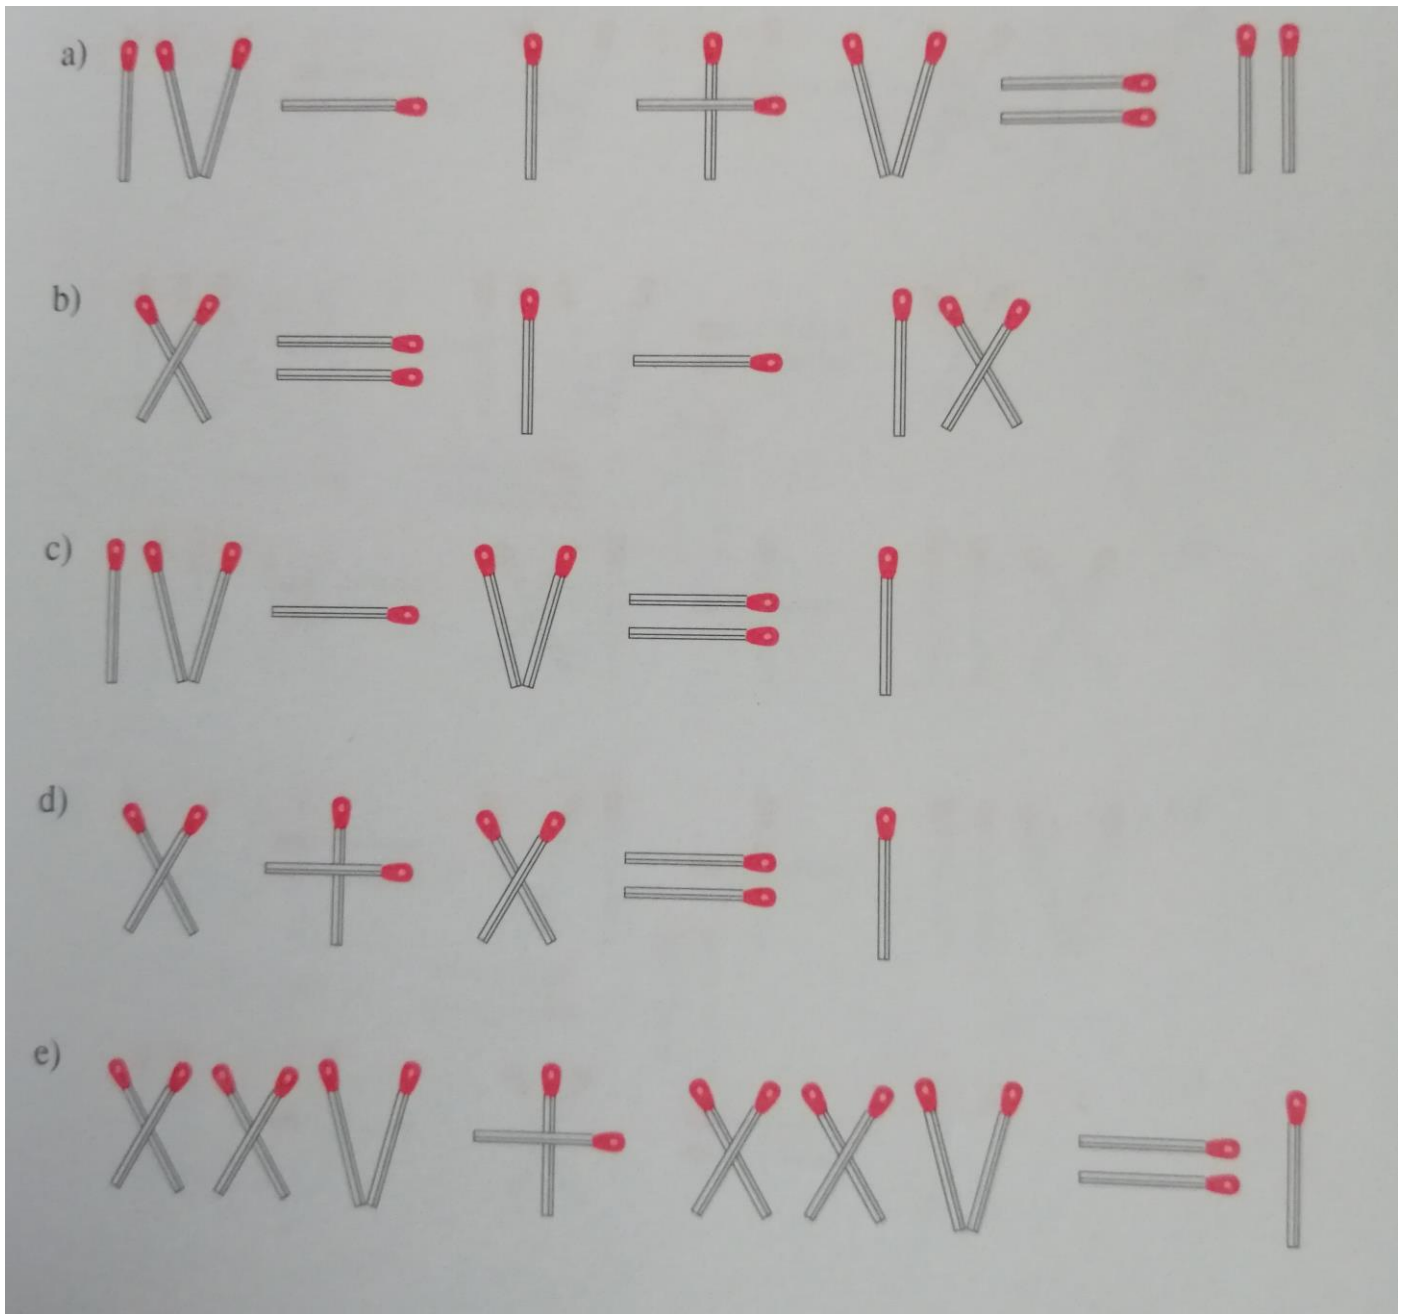 a) IV - I + V = II
b) X = I - IX
c) IV - V = I
d) X + X = I
e) XXV + XXV = I